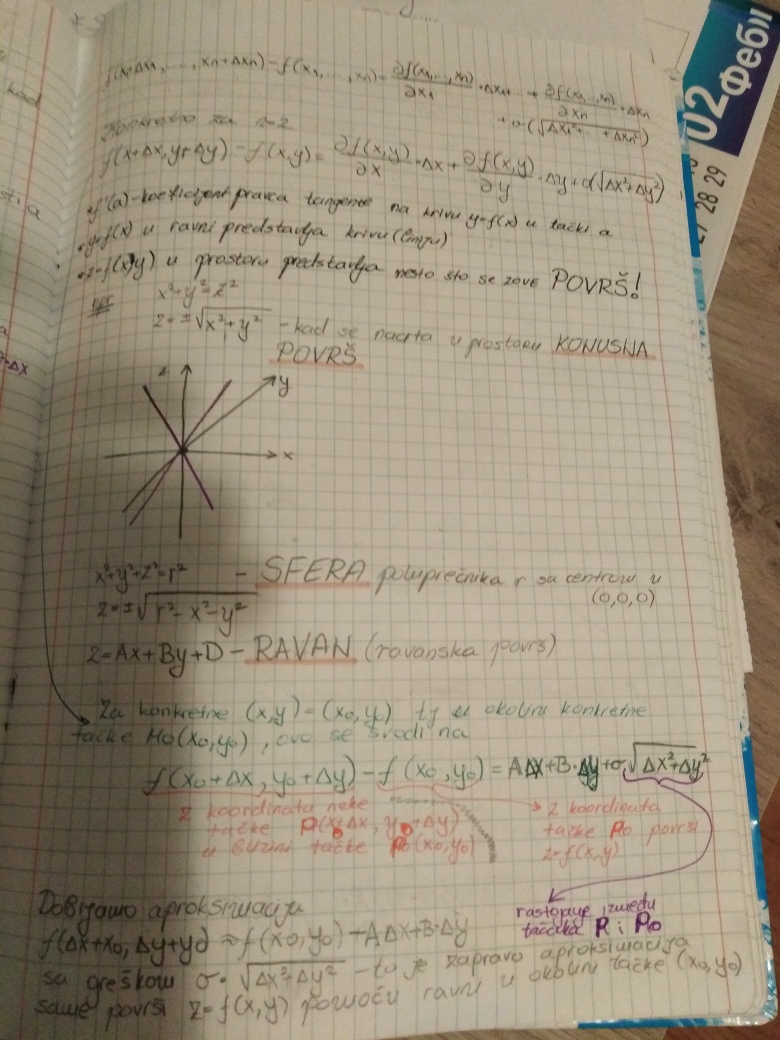 f(x₁+Δx₁, ..., xn+Δxn) - f(x₁, ..., xn) = ∂f(x₁,...,xn)/∂x₁ · Δx₁ + ... + ∂f(x₁,...,xn)/∂xn · Δxn
+ o(√(Δx₁²+ ... +Δxn²))
Konkretno za n=2
f(x+Δx, y+Δy) - f(x,y) = ∂f(x,y)/∂x · Δx + ∂f(x,y)/∂y · Δy + o(√(Δx²+Δy²))
• f'(a) - koeficijent pravca tangente na krivu y=f(x) u tački a
• y=f(x) u ravni predstavlja krivu (liniju)
• z=f(x,y) u prostoru predstavlja nešto što se zove POVRŠ!
npr. x²+y²=z²
z=±√(x²+y²) - kad se nacrta u prostoru KONUSNA
POVRŠ
z
y
x
x²+y²+z²=r² - SFERA poluprečnika r sa centrom u
(0,0,0)
z=±√(r²-x²-y²)
z=Ax+By+D - RAVAN (ravanska površ)
Za konkretne (x,y)=(x₀,y₀) tj u okolini konkretne
tačke M₀(x₀,y₀), ovo se svodi na
f(x₀+Δx, y₀+Δy) - f(x₀,y₀) = AΔx+B·Δy+σ·√(Δx²+Δy²)
z koordinata neke
tačke P(x₀+Δx, y₀+Δy)
u blizini tačke P₀(x₀,y₀)
z koordinata
tačke P₀ površi
z=f(x,y)
rastojanje između
tačaka P i P₀
Dobijamo aproksimaciju
f(Δx+x₀, Δy+y₀) ≈ f(x₀,y₀) + AΔx+B·Δy
sa greškom σ·√(Δx²+Δy²) - to je zapravo aproksimacija
same površi z=f(x,y) pomoću ravni u okolini tačke (x₀,y₀)
02
Феб
27 28 29
kad